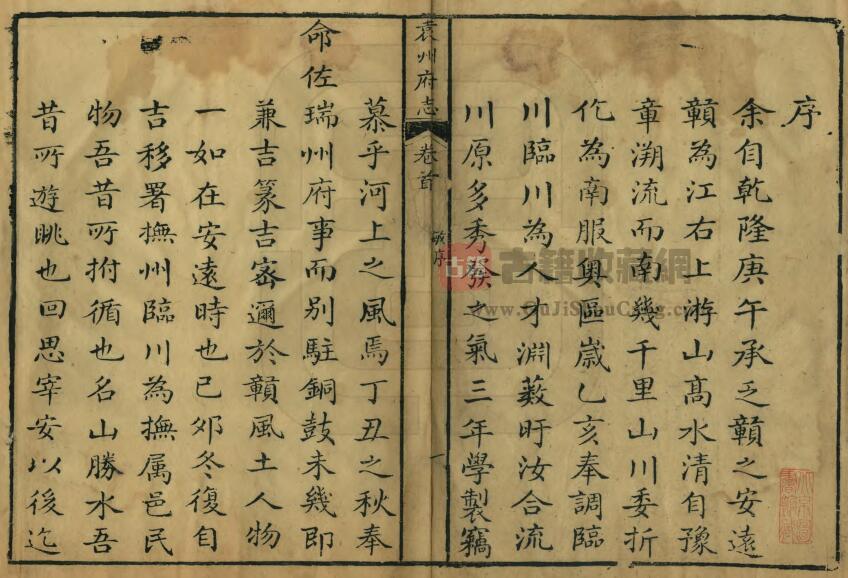 序
余自乾隆庚午承乏贑之安遠
贑為江右上游山高水清自豫
章溯流而南幾千里山川委折
化為南服奥區歲乙亥奉調臨
川臨川為人才淵薮旴汝合流
川原多秀發之氣三年學製竊
袁州府志
卷首
序
一
慕乎河上之風焉丁丑之秋奉
命佐瑞州府事而别駐銅鼓未幾即
兼吉篆吉宻邇於贑風土人物
一如在安遠時也已夘冬復自
吉移署撫州臨川為撫属邑民
物吾昔所拊循也名山勝水吾
昔所遊眺也回思宰安以後迄
古籍收藏網
www.GuJiShouCang.c